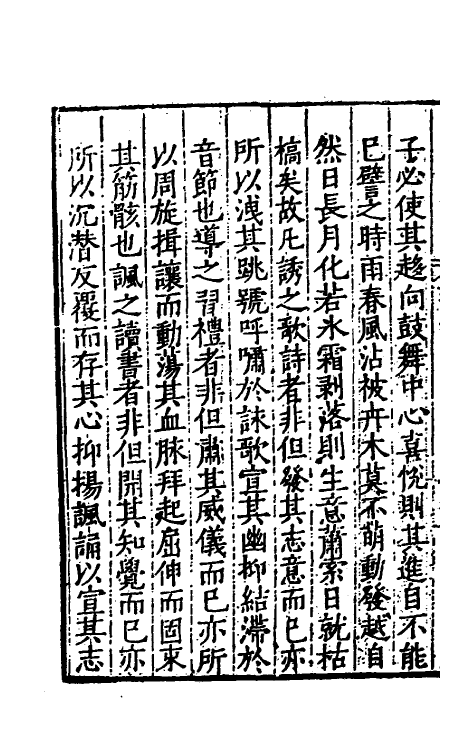 子必使其趨向鼓舞中心喜悅則其進自不能
已譬之時雨春風沾被卉木莫不萌動發越自
然日長月化若氷霜剥落則生意蕭索日就枯
槁矣故凡誘之歌詩者非但發其志意而已亦
所以洩其跳號呼嘯於詠歌宣其幽抑結滯於
音節也導之習禮者非但肅其威儀而已亦所
以周旋揖讓而動蕩其血脉拜起屈伸而固束
其筋骸也諷之讀書者非但開其知覺而已亦
所以沉潜反覆而存其心抑揚諷誦以宣其志